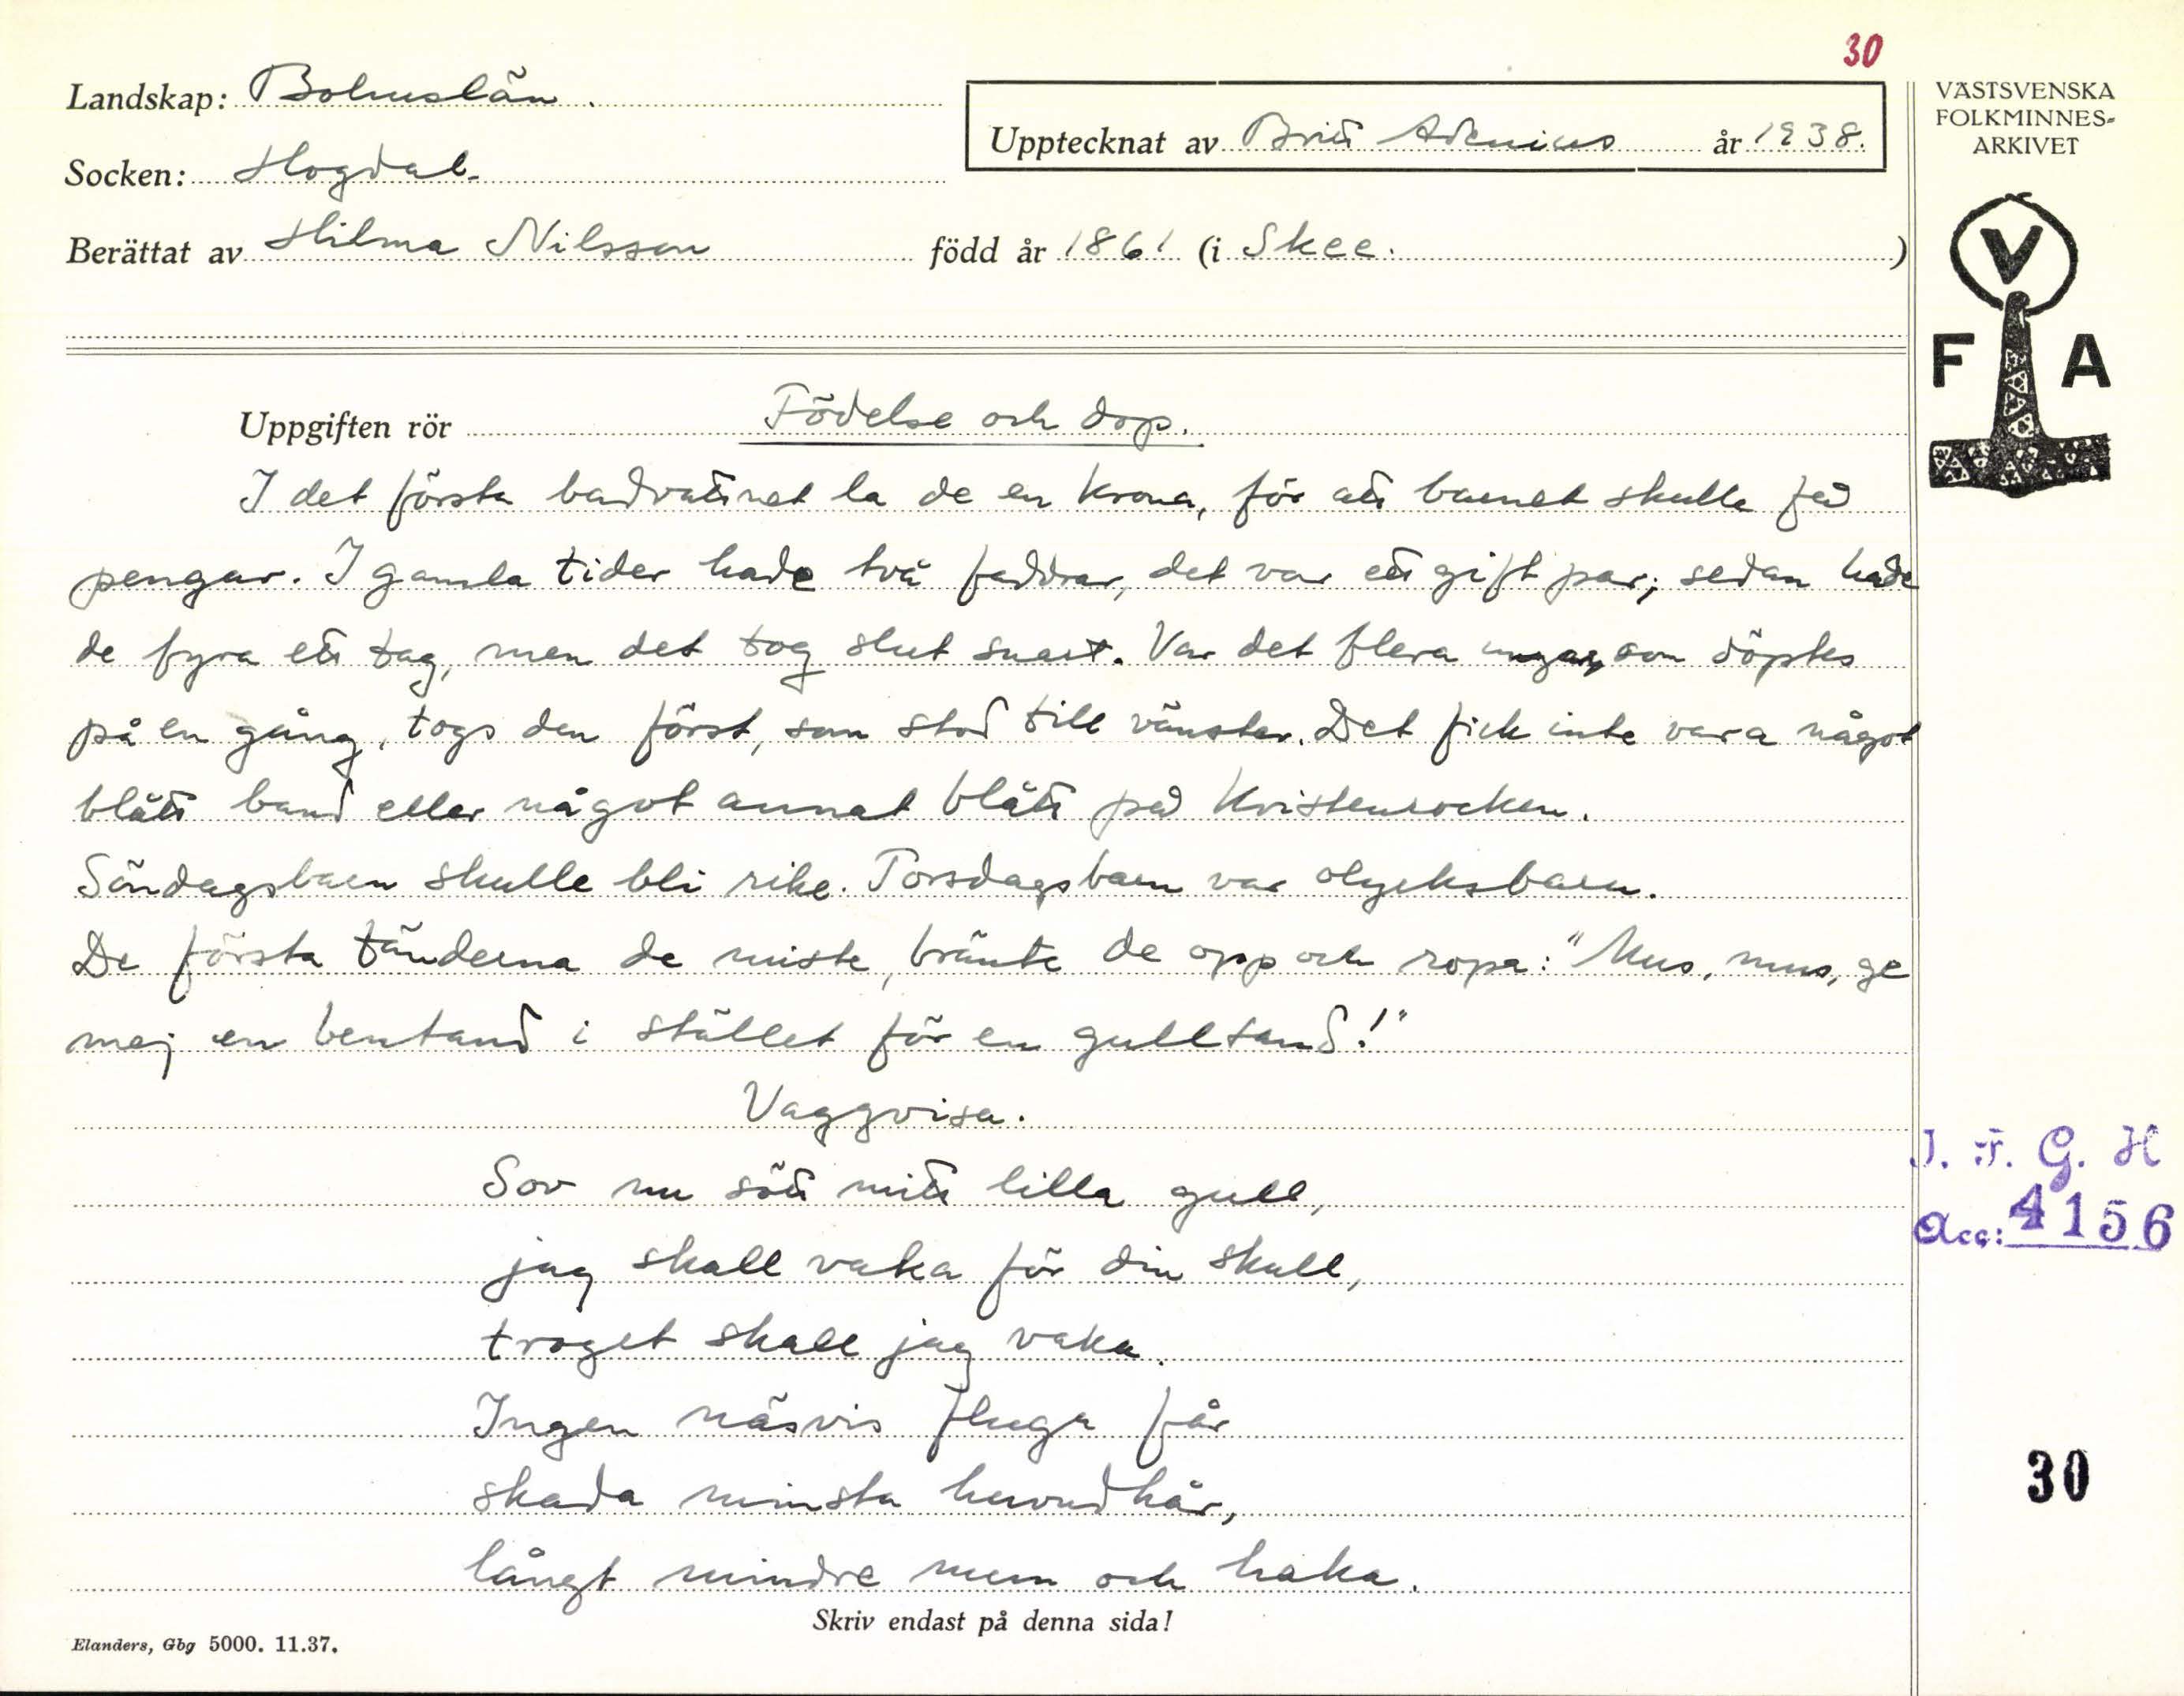 30
Landskap: Bohuslän.
Upptecknat av Britt år 1938.
Socken: Hogdal.
Berättat av Hilma Nilsson född år 1861 (i Skee.)
VÄSTSVENSKA
FOLKMINNES-
ARKIVET
V
F A
Uppgiften rör Födelse och dop.
I det första badvattnet la de en krona, för att barnet skulle få
pengar. I gamla tider hade två faddrar, det var ett gift par; sedan hade
de fyra ett tag, men det tog slut snart. Var det flera ungar, som döptes
på en gång, togs den först, som stod till vänster. Det fick inte vara något
blått band eller något annat blått på kristenrocken.
Söndagsbarn skulle bli rike. Torsdagsbarn var olycksbarn.
De första tänderna de miste, bränte de opp och ropa: "Mus, mus, ge
mej en bentand i stället för en gulltand!"
Vaggvisa.
Sov nu sött mitt lilla gull,
jag skall vaka för din skull,
troget skall jag vaka.
Ingen näsvis fluga får
skada minsta huvudhår,
långt mindre mun och haka.
I. F. G. H
Acc: 4156
30
Skriv endast på denna sida!
Elanders, Gbg 5000. 11.37.